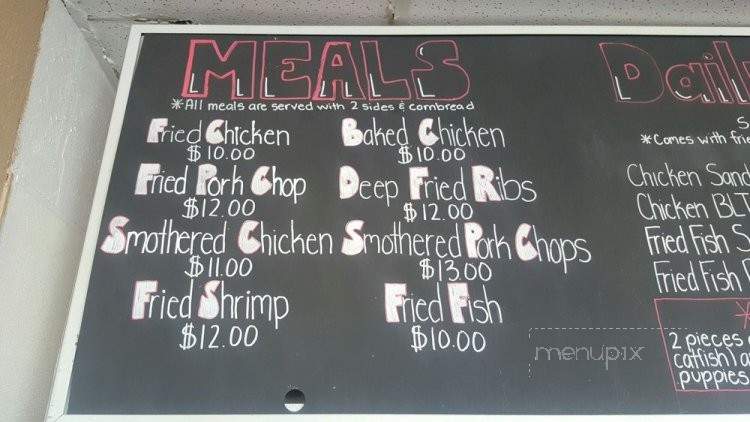 MEALS
*All meals are served with 2 sides & cornbread
Fried Chicken Baked Chicken
$10.00 $10.00
Fried Pork Chop Deep Fried Ribs
$12.00 $12.00
Smothered Chicken Smothered Pork Chops
$11.00 $13.00
Fried Shrimp Fried Fish
$12.00 $10.00
Dail
S
*Comes with frie
Chicken Sand
Chicken BLT
Fried Fish S
Fried Fish
*
2 pieces
catfish) a
puppies
menupix